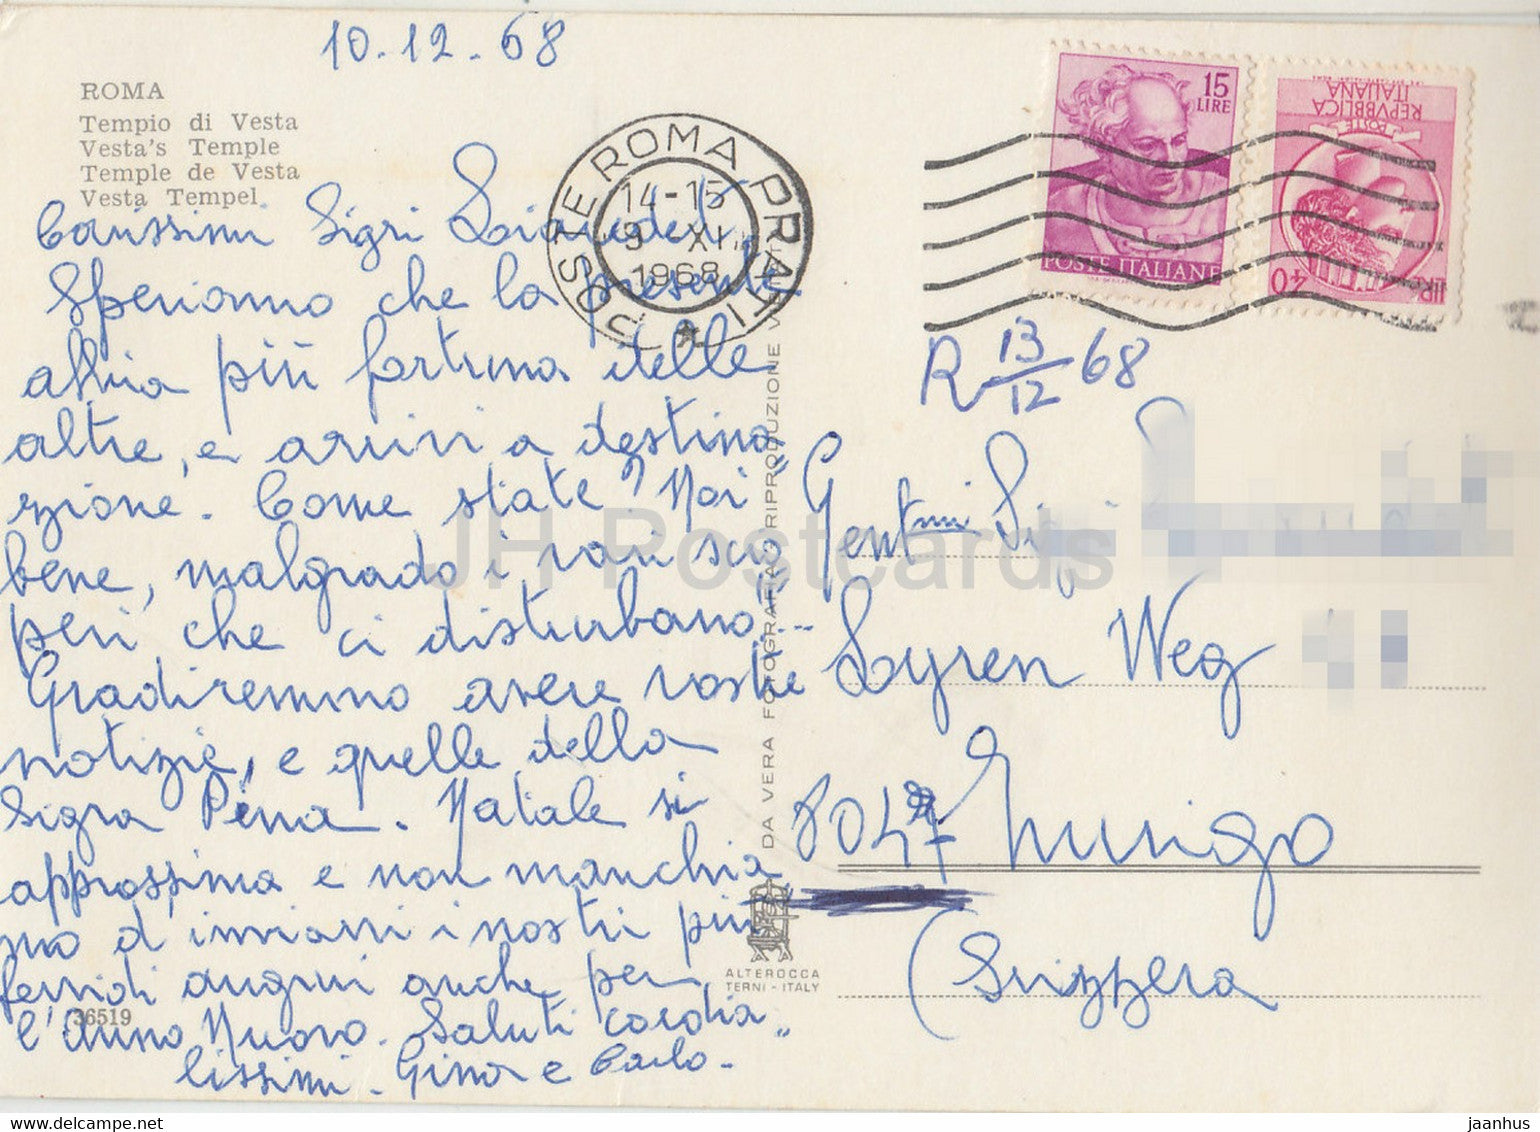 10.12.68
ROMA
Tempio di Vesta
Vesta's Temple
Temple de Vesta
Vesta Tempel
Carissimi Sigri
Speriamo che la presente
abbia più fortuna delle
altre, e arrivi a destina
zione. Come state? Noi
bene, malgrado i vari scio
peri che ci disturbano...
Gradiremmo avere vostre
notizie, e quelle della
Sigra Pina. Natale si
approssima e non manchia
mo d'inviarvi i nostri più
fervidi auguri anche per
l'Anno Nuovo. Saluti cordia„
lissimi. Gina e Carlo.
36519
POSTE ROMA PRATI
14-15
XI
1968
15
LIRE
POSTE ITALIANE
REPVBBLICA
ITALIANA
POSTE
LIRE
40
R 13/12 68
Gentmi
Lyren Weg
8047
(Svizzera
DA VERA FOTOGRAFIA RIPRODUZIONE
ALTEROCCA
TERNI - ITALY
JH Postcards
www.delcampe.net
jaanhus